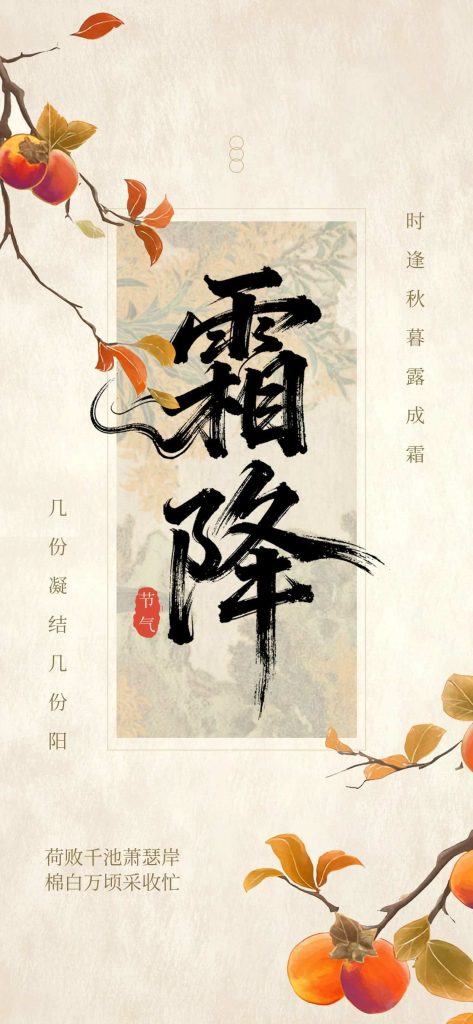 霜降
节气
时逢秋暮露成霜
几份凝结几份阳
荷败千池萧瑟岸
棉白万顷采收忙